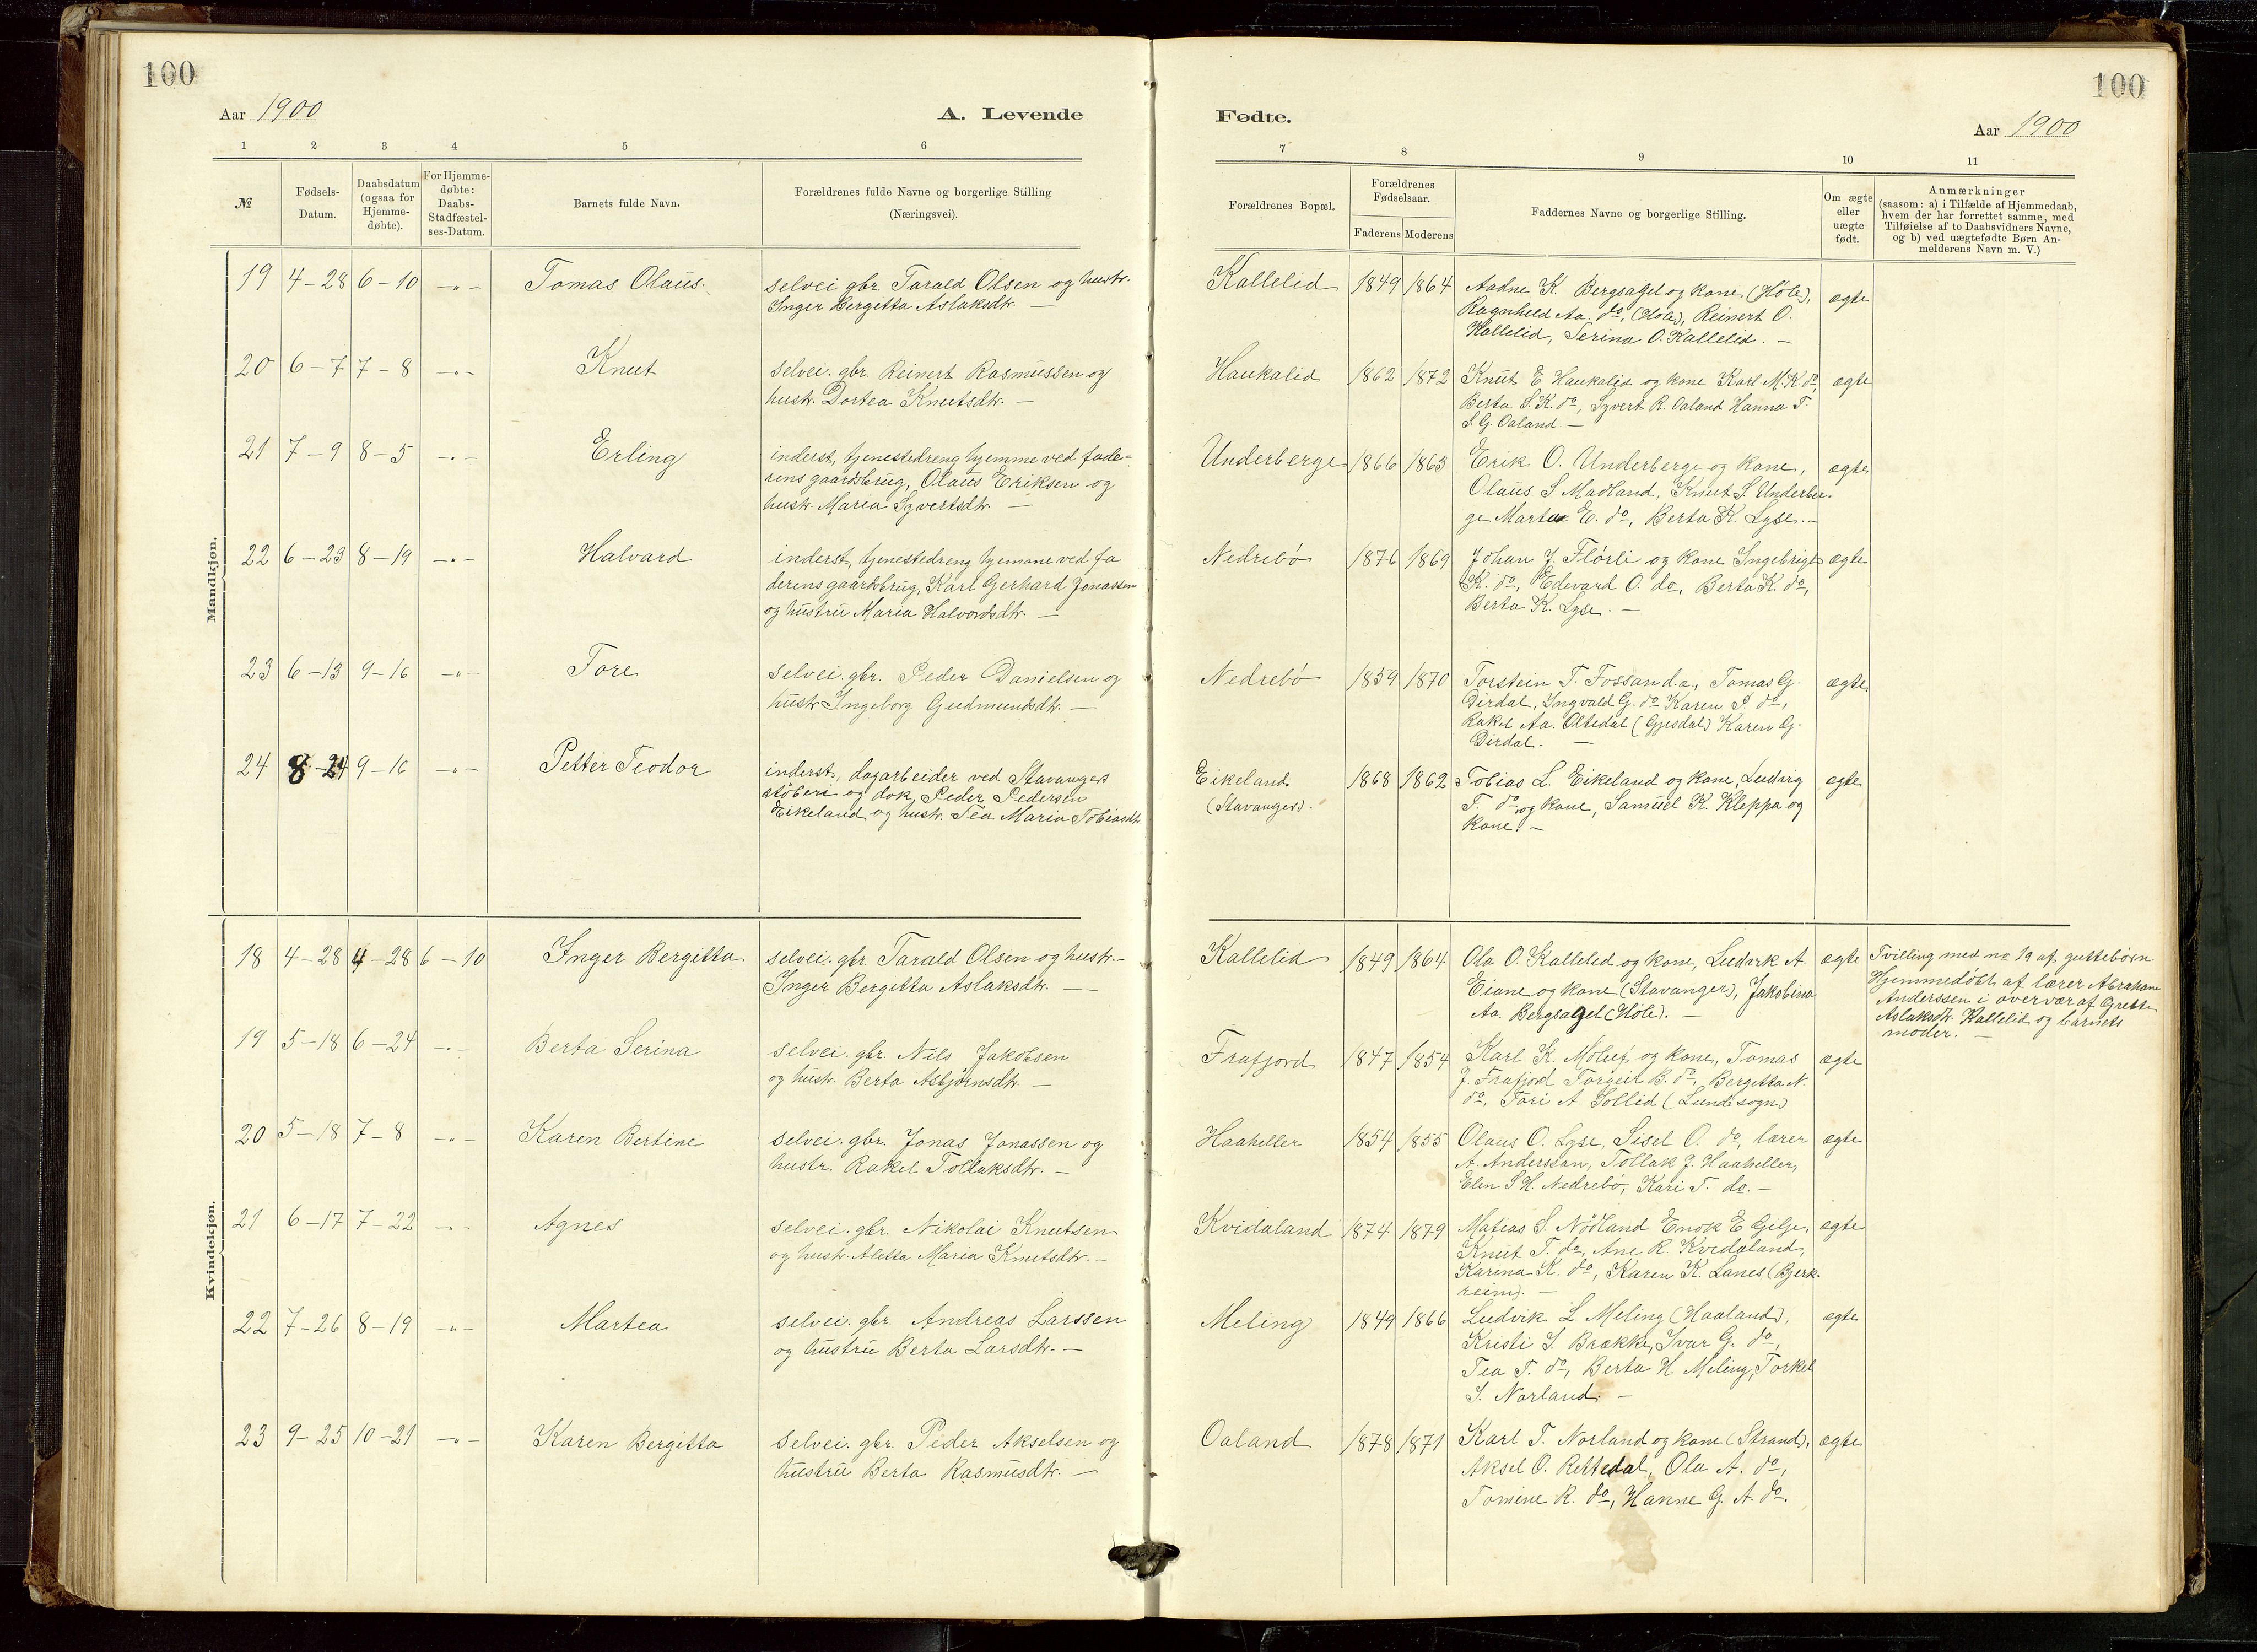 100
100
Aar 1900
A. Levende
Fødte.
Aar 1900
1 2 3 4 5 6
7 8 9 10 11
№
Fødsels-
Datum.
Daabsdatum
(ogsaa for
Hjemme-
døbte).
For Hjemme-
døbte:
Daabs-
Stadfæstel-
ses-Datum.
Barnets fulde Navn.
Forældrenes fulde Navne og borgerlige Stilling
(Næringsvei).
Forældrenes Bopæl.
Forældrenes
Fødselsaar.
Faderens Moderens
Faddernes Navne og borgerlige Stilling.
Om ægte
eller
uægte
født.
Anmærkninger
(saasom: a) i Tilfælde af Hjemmedaab,
hvem der har forrettet samme, med
Tilføielse af to Daabsvidners Navne,
og b) ved uægtefødte Børn An-
melderens Navn m. V.)
Mandkjøn.
19 4-28 6-10 -"- Tomas Olaus.
selvei gbr. Tarald Olsen og hustr.
Inger Bergitta Aslaksdtr. —
Kallelid 1849 1864
Aadne K. Bergsagel og kone (Høle),
Ragnheld Aa. do, (Høle), Reinert O.
Kallelid, Serina O. Kallelid. —
ægte
20 6-7 7-8 -"- Knut
selvei. gbr. Reinert Rasmussen og
hustr. Dortea Knutsdtr. —
Haukalid 1862 1872
Knut E Haukalid og kone Karl M. K. do,
Berta S. K. do, Syvert R. Oaland Hanna T.
S. G. Oaland. —
ægte
21 7-9 8-5 -"- Erling
inderst, tjenestedreng hjemme ved fade=
rens gaardsbrug, Olaus Eriksen og
hustr. Maria Syvertsdtr. —
Underberge 1866 1863
Erik O. Underberge og kone,
Olaus S Madland, Knut S. Underber.
ge Marta E. do, Berta K. Lyse. —
ægte
22 6-23 8-19 -"- Halvard
inderst, tjenestedreng hjemme ved fa
derens gaardsbrug, Karl Gerhard Jonassen
og hustru Maria Halvordsdtr. —
Nedrebø 1876 1869
Johan J. Flørli og kone Ingebrigt
K. do, Edevard O. do, Berta K. do,
Berta K. Lyse. —
ægte
23 6-13 9-16 -"- Tore
selvei. gbr. Peder Danielsen og
hustr Ingeborg Gudmundsdtr. —
Nedrebø 1859 1870
Torstein T. Fossan d.æ., Tomas G.
Dirdal, Ingvald G. do Karen P. do,
Rakel Aa. Oltedal (Gjesdal) Karen G.
Dirdal. —
ægte
24 8-24 9-16 -"- Petter Teodor
inderst, dagarbeider ved Stavanger
støberi og dok, Peder Pedersen
Eikeland og hustr. Tea Maria Tobiasdtr.
Eikeland
(Stavanger).
1868 1862
Tobias L. Eikeland og kone, Ludvig
T. do og kone, Samuel K. Kleppa og
kone. —
ægte
Kvindekjøn.
18 4-28 4-28 6-10 Inger Bergitta
selvei. gbr. Tarald Olsen og hustr. —
Inger Bergitta Aslaksdtr. —
Kallelid 1849 1864
Ola O. Kallelid og kone, Ludvik A.
Eiane og kone (Stavanger), Jakobina
Aa. Bergsagel (Høle). —
ægte
Tvilling med no 19 af guttebørn
Hjemmedøbt af lærer Abraham
Anderssen i overvær af Grete
Aslaksdtr. Kallelid og barnets
moder. —
19 5-18 6-24 -"- Berta Serina
selvei. gbr. Nils Jakobsen
og hustr. Berta Asbjørnsdtr. —
Frafjord 1847 1854
Karl K. Molaug og kone, Tomas
J. Frafjord Torgeir B. do, Bergitta N.
do, Tori A. Sollid (Lunde sogn)
ægte
20 5-18 7-8 -"- Karen Bertine
selvei. gbr. Jonas Jonassen og
hustr. Rakel Tollaksdtr. —
Haaheller 1854 1855
Olaus O. Lyse, Sisel O. do, lærer
A. Anderssen, Tollak J. Haaheller,
Elen S H. Nedrebø, Kari T. do. —
ægte
21 6-17 7-22 -"- Agnes
selvei. gbr. Nikolai Knutsen
og hustr. Aletta Maria Knutsdtr. —
Kvidaland 1874 1879
Matias S. Nødland Enok E Gilje,
Knut T. do, Ane R. Kvidaland,
Karina K. do, Karen K. Lanes (Bjerk-
reim). —
ægte
22 7-26 8-19 -"- Martea
selvei. gbr. Andreas Larssen
og hustru Berta Larsdtr. —
Meling 1849 1866
Ludvik L. Meling (Haaland),
Kristi I. Brække, Ivar G. do,
Tea T. do, Berta H. Meling, Torkel
I. Norland. —
ægte
23 9-25 10-21 -"- Karen Bergitta
selvei. gbr. Peder Akselsen og
hustru Berta Rasmusdtr. —
Oaland 1878 1871
Karl T. Norland og kone (Strand),
Aksel O. Rettedal, Ola A. do,
Tomine R. do, Hanne G. A. do.
ægte